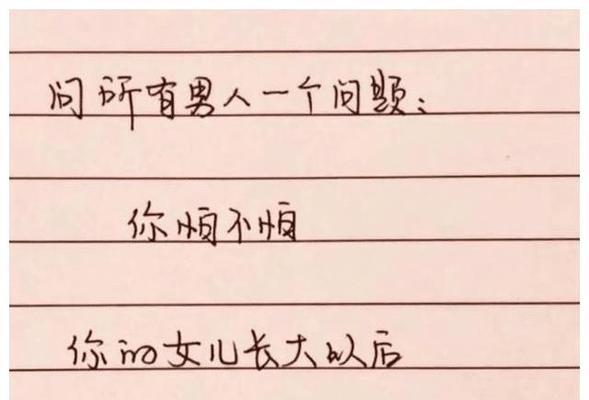 问所有男人一个问题：
你怕不怕
你的女儿长大以后